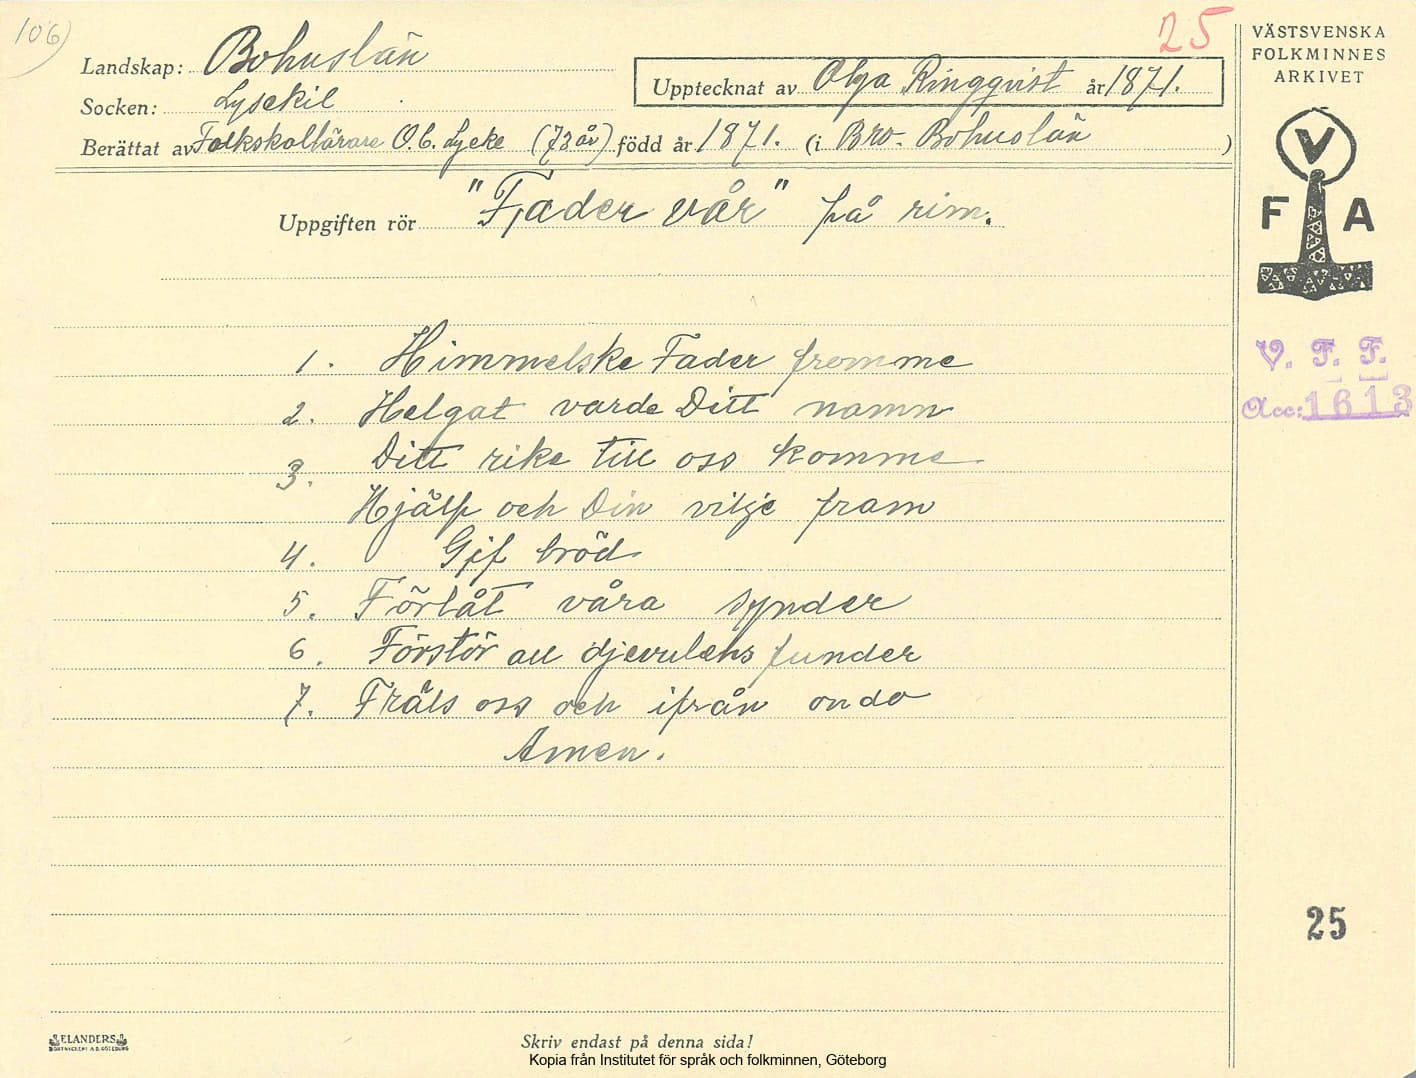 106)
25
Landskap: Bohuslän
Socken: Lysekil
Upptecknat av Olga Ringqvist år 1871.
Berättat av Folkskollärare O. C. Lycke (73 år) född år 1871. (i Bro - Bohuslän )
Uppgiften rör "Fader vår" på rim.
1. Himmelske Fader fromme
2. Helgat varde Ditt namn
3. Ditt rike till oss komme
Hjälp och Din vilje fram
4. Gif bröd
5. Förlåt våra synder
6. Förstör all djevulens funder
7. Fräls oss och ifrån ondo
Amen.
VÄSTSVENSKA
FOLKMINNES
ARKIVET
V
F A
V. F. F.
Acc: 1613
25
ELANDERS
BOKTRYCKERI A.B. GÖTEBORG
Skriv endast på denna sida!
Kopia från Institutet för språk och folkminnen, Göteborg